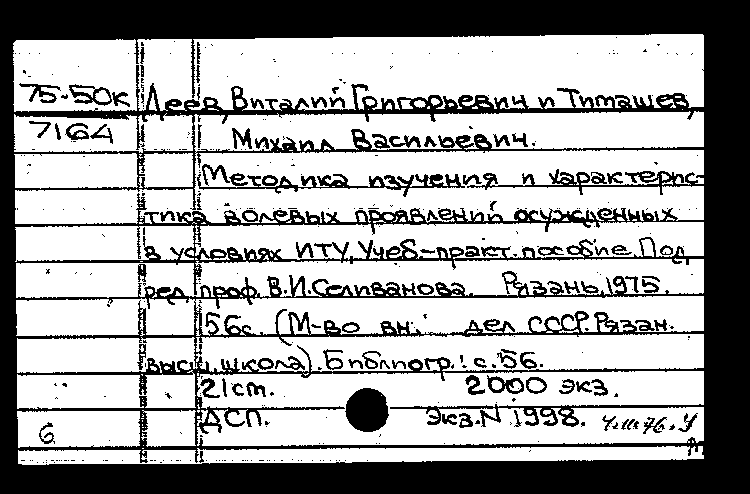 75-50к Деев, Виталий Григорьевич и Тимашев,
7164 Михаил Васильевич.
Методика изучения и характерис-
тика волевых проявлений осужденных
в условиях ИТУ. Учеб-практ. пособие. Под
ред. проф. В.И.Селиванова. Рязань, 1975.
56с. (М-во вн. дел СССР. Рязан.
высш. школа). Библиогр.: с.56.
21 ст. 2000 экз.
ДСП. Экз.N 1998.
6